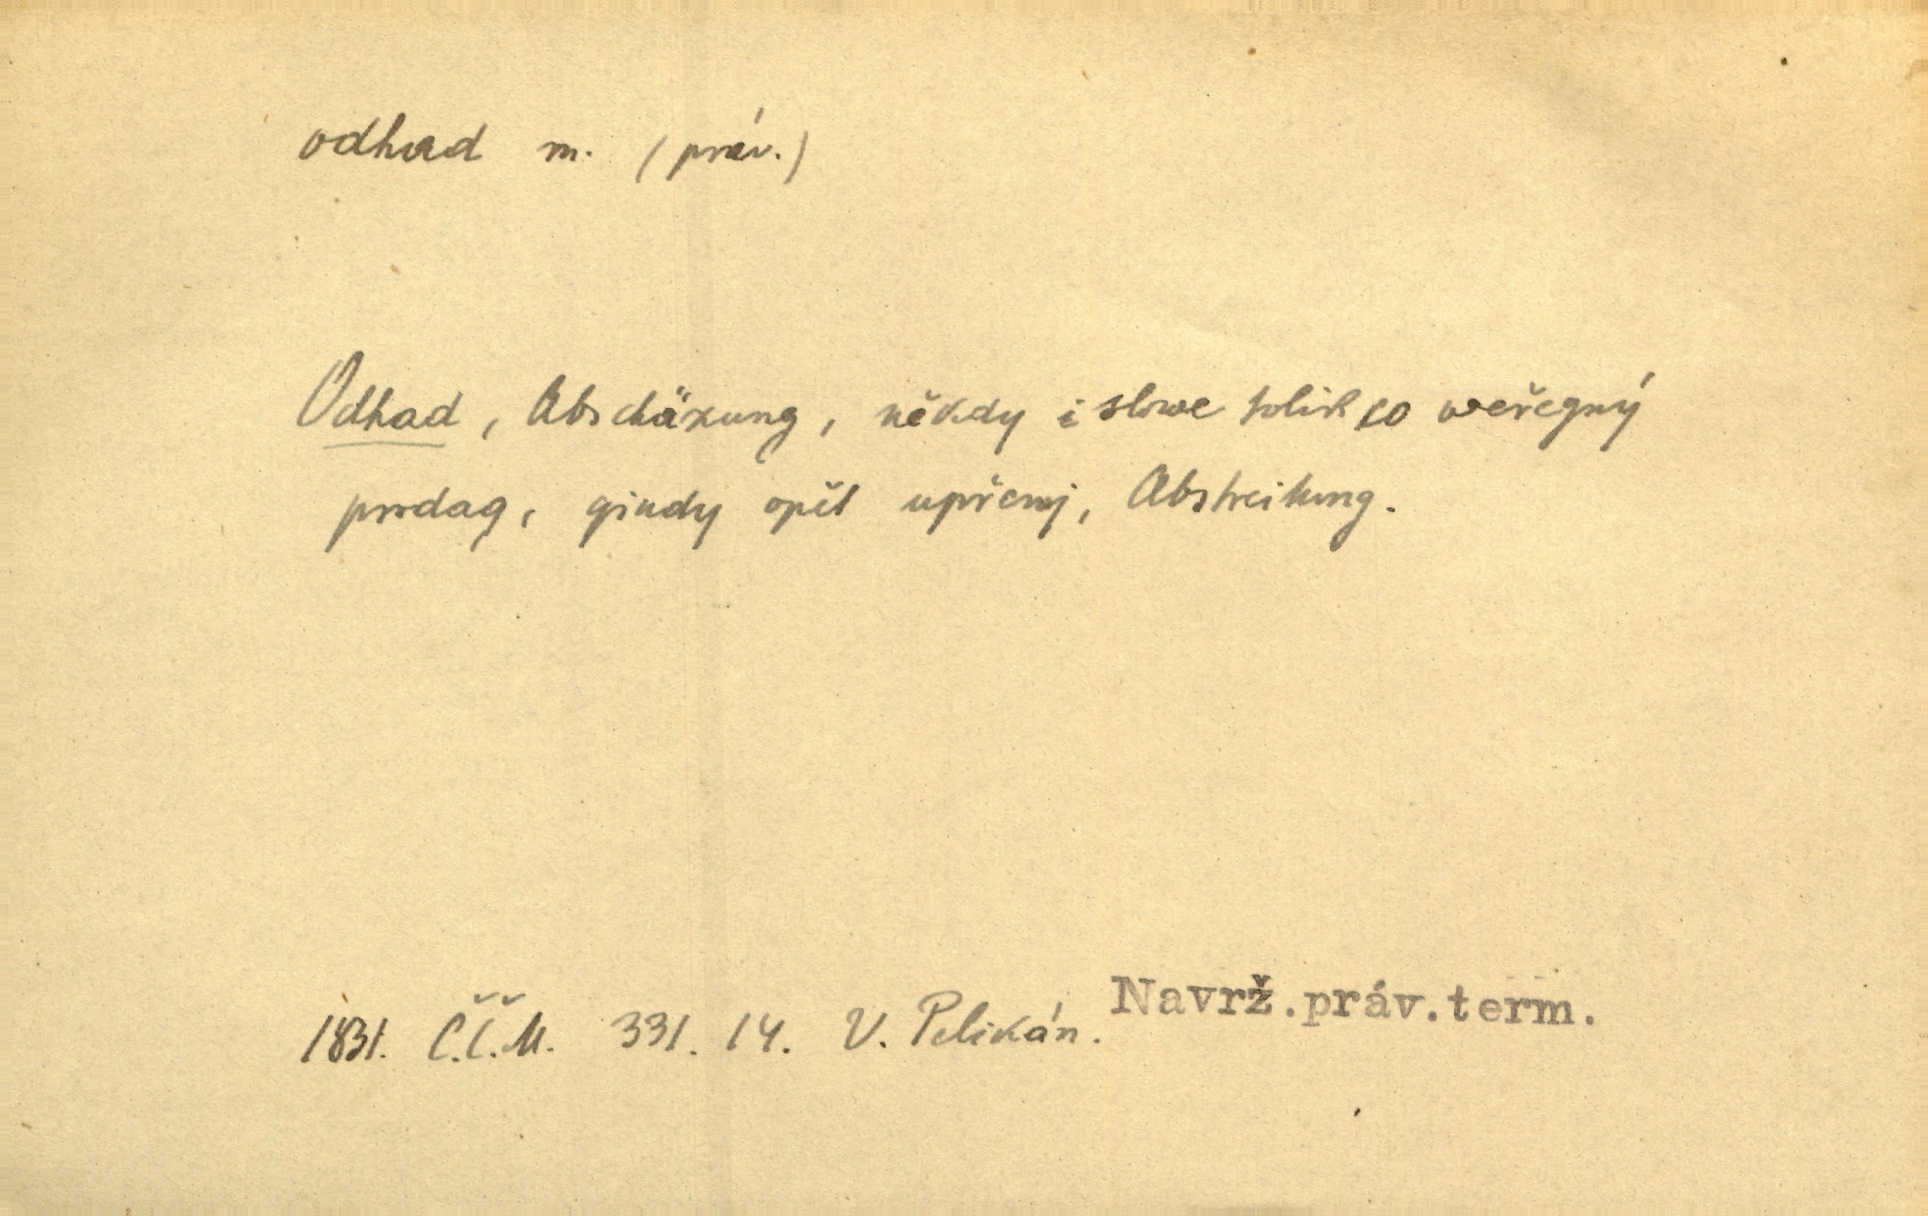 odhad m. (práv.)
Odhad, Abschäzung, někdy i slowe tolik co weřegný
prodag, gindy opět upřenj, Abstreitung.
1831. Č.Č.M. 331. 14. V. Pelikán. Navrž.práv.term.